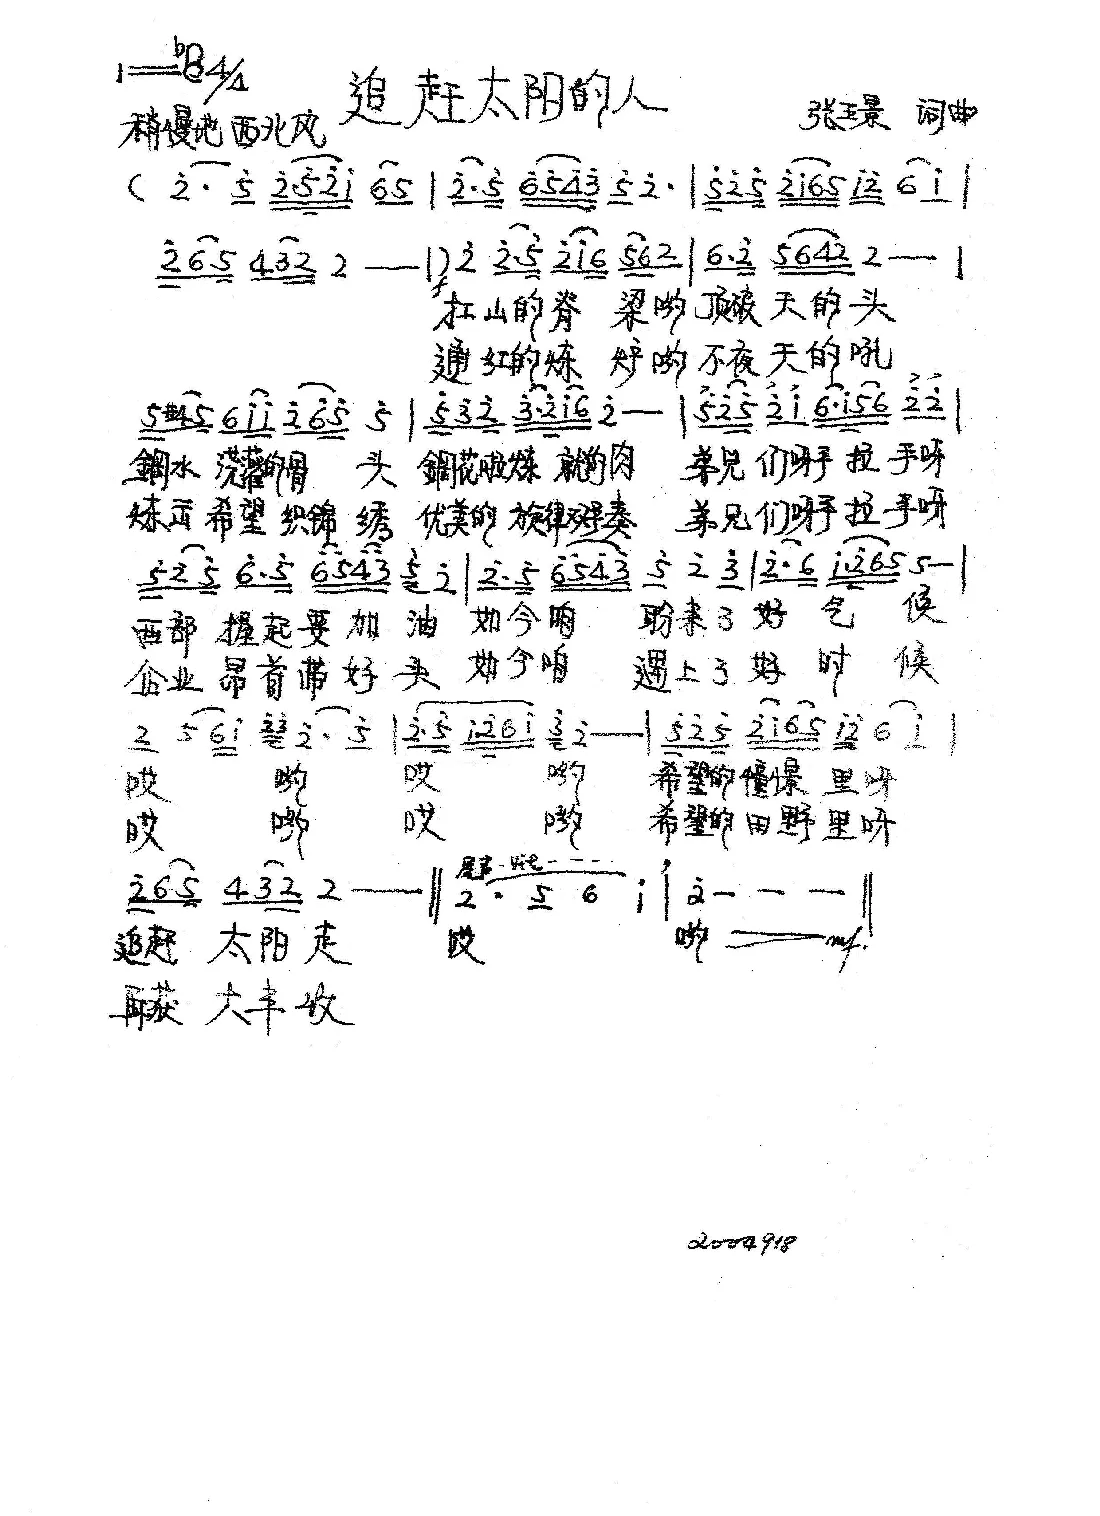 1=♭B 4/4
追赶太阳的人
稍慢地 西北风
张玉景 词曲
( 2̇· 5̇ 2̇·5̇2̇i 65 | 2̇·5̇ 6̇5̇4̇3̇ 5̇2̇· | 5̇2̇5̇ 2̇i65 i2̇ 6i |
2̇65 432 2 — |) 2̇ 2̇·5̇ 2̇i6 562 | 6·2̇ 5642 2 — |
扛山的脊 梁哟 顶破 天的头
通红的炼 炉哟 不夜天的吼
5#45 6ii 2̇65 5̇ | 5̇3̇2̇ 3̇·2̇i6 2̇ — | 5̇2̇5̇ 2̇i 6·i56 2̇2̇ |
鋼水 浇灌的骨 头 鋼花 炼 就的肉 弟兄们呀手拉手呀
炼 希望 织锦 绣 优美的 旋律 奏 弟兄们呀手拉手呀
5̇2̇5̇ 6̇·5̇ 6̇5̇4̇3̇ 5̇2̇ | 2̇·5̇ 6̇5̇4̇3̇ 5̇ 2̇ 3̇ | 2̇·6 i·265 5— |
西部 握起要加油 如今咱 盼来了好气候
企业昂首带好头 如今咱 遇上了好时候
2 5 6i 2̇3̇ 2̇· 5̇ | 2̇·5̇ i·26i 3̇2̇ — | 5̇2̇5̇ 2̇i65 i2̇ 6 i |
哎 哟 哎 哟 希望的憧憬里呀
哎 哟 哎 哟 希望的田野里呀
2̇65 432 2 — ‖ 2· 5 6 i | 2̇ — — — ‖
尾声
追赶 太阳走 哎 哟 mf.
再获 大丰收
2004918